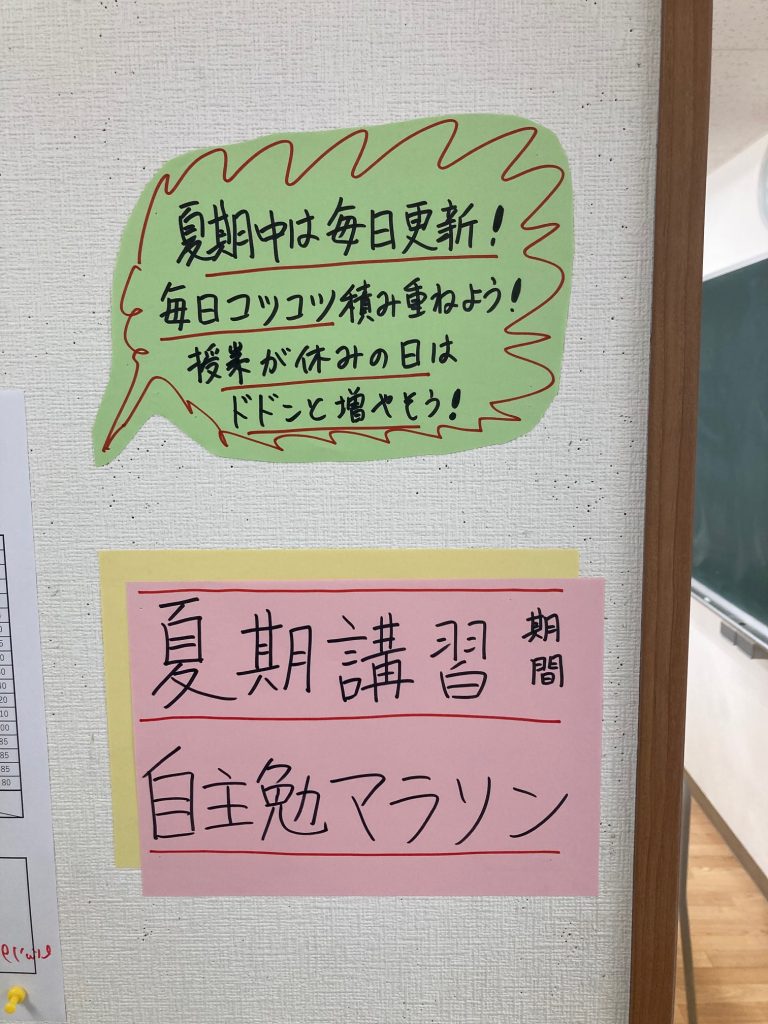 夏期中は毎日更新!
毎日コツコツ積み重ねよう!
授業が休みの日は
ドドンと増やそう!
夏期講習 期間
自主勉マラソン